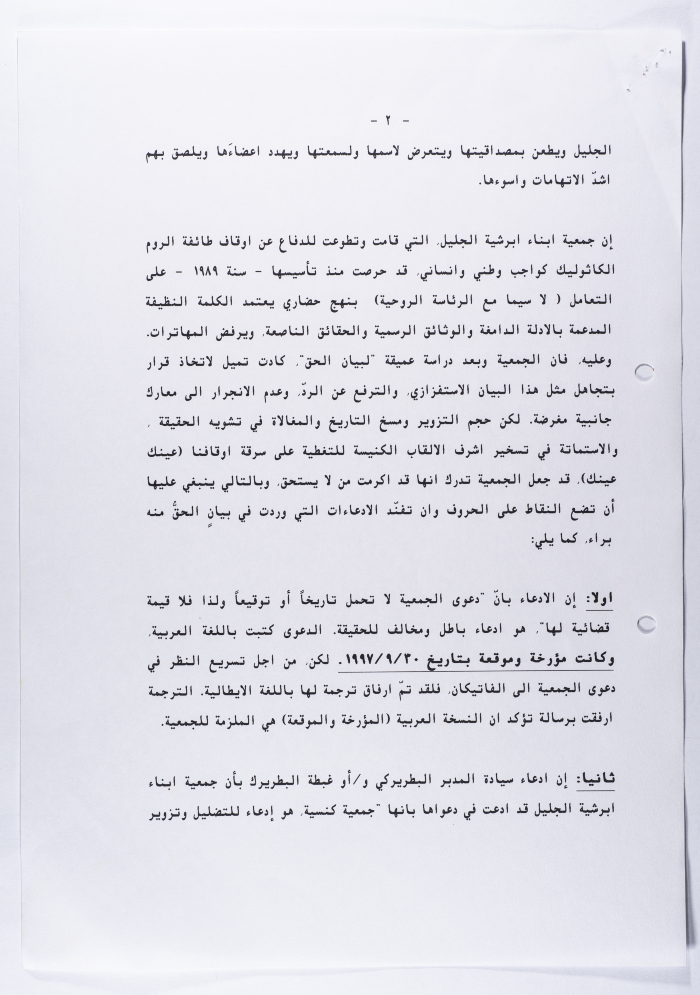 - ٢ -
الجليل ويطعن بمصداقيتها ويتعرض لاسمها ولسمعتها ويهدد اعضاءَها ويلصق بهم
اشدّ الاتهامات واسوءها.
إن جمعية ابناء ابرشية الجليل، التي قامت وتطوعت للدفاع عن اوقاف طائفة الروم
الكاثوليك كواجب وطني وانساني، قد حرصت منذ تأسيسها - سنة ١٩٨٩ - على
التعامل ( لا سيما مع الرئاسة الروحية) بنهج حضاري يعتمد الكلمة النظيفة
المدعمة بالادلة الدامغة والوثائق الرسمية والحقائق الناصعة، ويرفض المهاترات.
وعليه، فان الجمعية وبعد دراسة عميقة "لبيان الحق"، كادت تميل لاتخاذ قرار
بتجاهل مثل هذا البيان الاستفزازي، والترفع عن الردّ، وعدم الانجرار الى معارك
جانبية مغرضة. لكن حجم التزوير ومسخ التاريخ والمغالاة في تشويه الحقيقة ،
والاستماتة في تسخير اشرف الالقاب الكنيسة للتغطية على سرقة اوقافنا (عينك
عينك)، قد جعل الجمعية تدرك انها قد اكرمت من لا يستحق، وبالتالي ينبغي عليها
أن تضع النقاط على الحروف وان تفنّد الادعاءات التي وردت في بيانٍ الحقُّ منه
براء، كما يلي:
اولا: إن الادعاء بانّ "دعوى الجمعية لا تحمل تاريخاً أو توقيعاً ولذا فلا قيمة
قضائية لها"، هو ادعاء باطل ومخالف للحقيقة. الدعوى كتبت باللغة العربية،
وكانت مؤرخة وموقعة بتاريخ ١٩٩٧/٩/٣٠. لكن، من اجل تسريع النظر في
دعوى الجمعية الى الفاتيكان، فلقد تمّ ارفاق ترجمة لها باللغة الايطالية. الترجمة
ارفقت برسالة تؤكد ان النسخة العربية (المؤرخة والموقعة) هي الملزمة للجمعية.
ثانيا: إن ادعاء سيادة المدبر البطريركي و/أو غبطة البطريرك بأن جمعية ابناء
ابرشية الجليل قد ادعت في دعواها بانها "جمعية كنسية، هو إدعاء للتضليل وتزوير